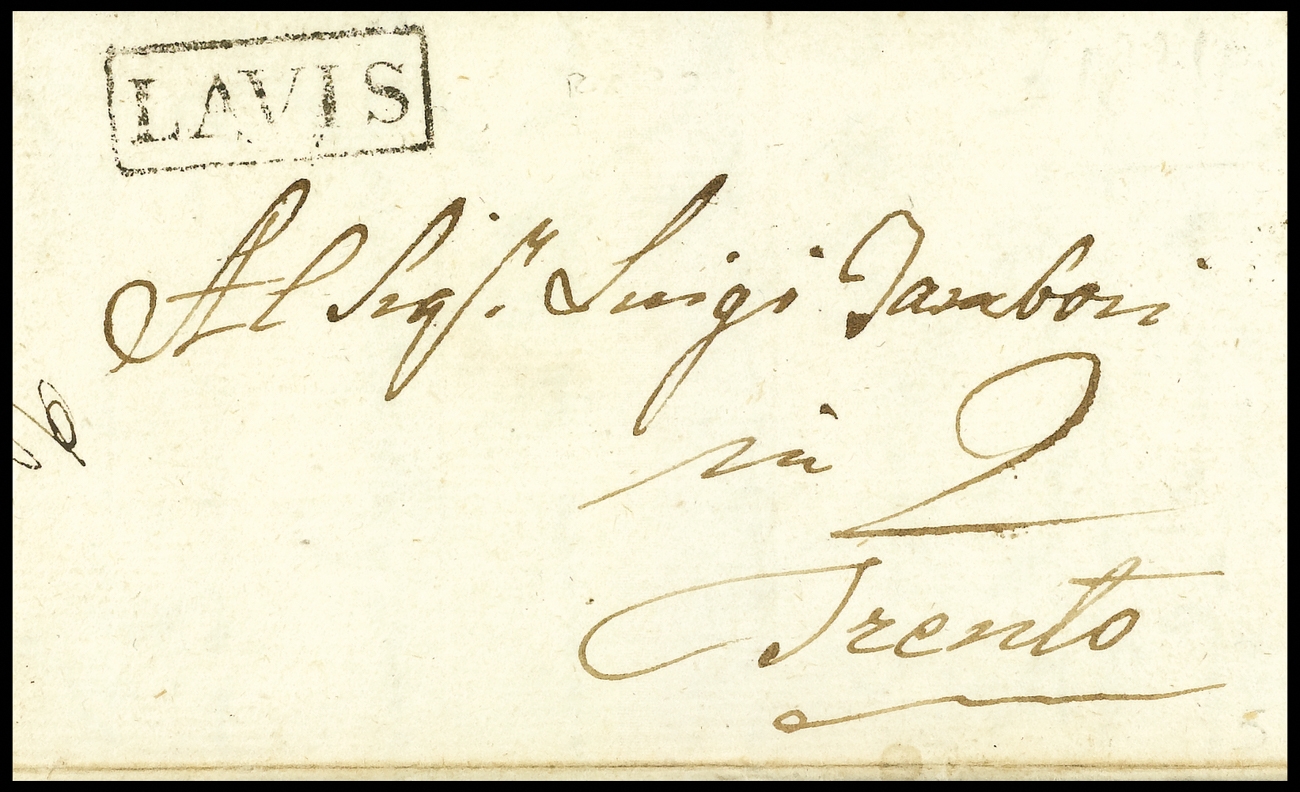 LAVIS
Al Sigr. Luigi Tambosi
in 2
Trento